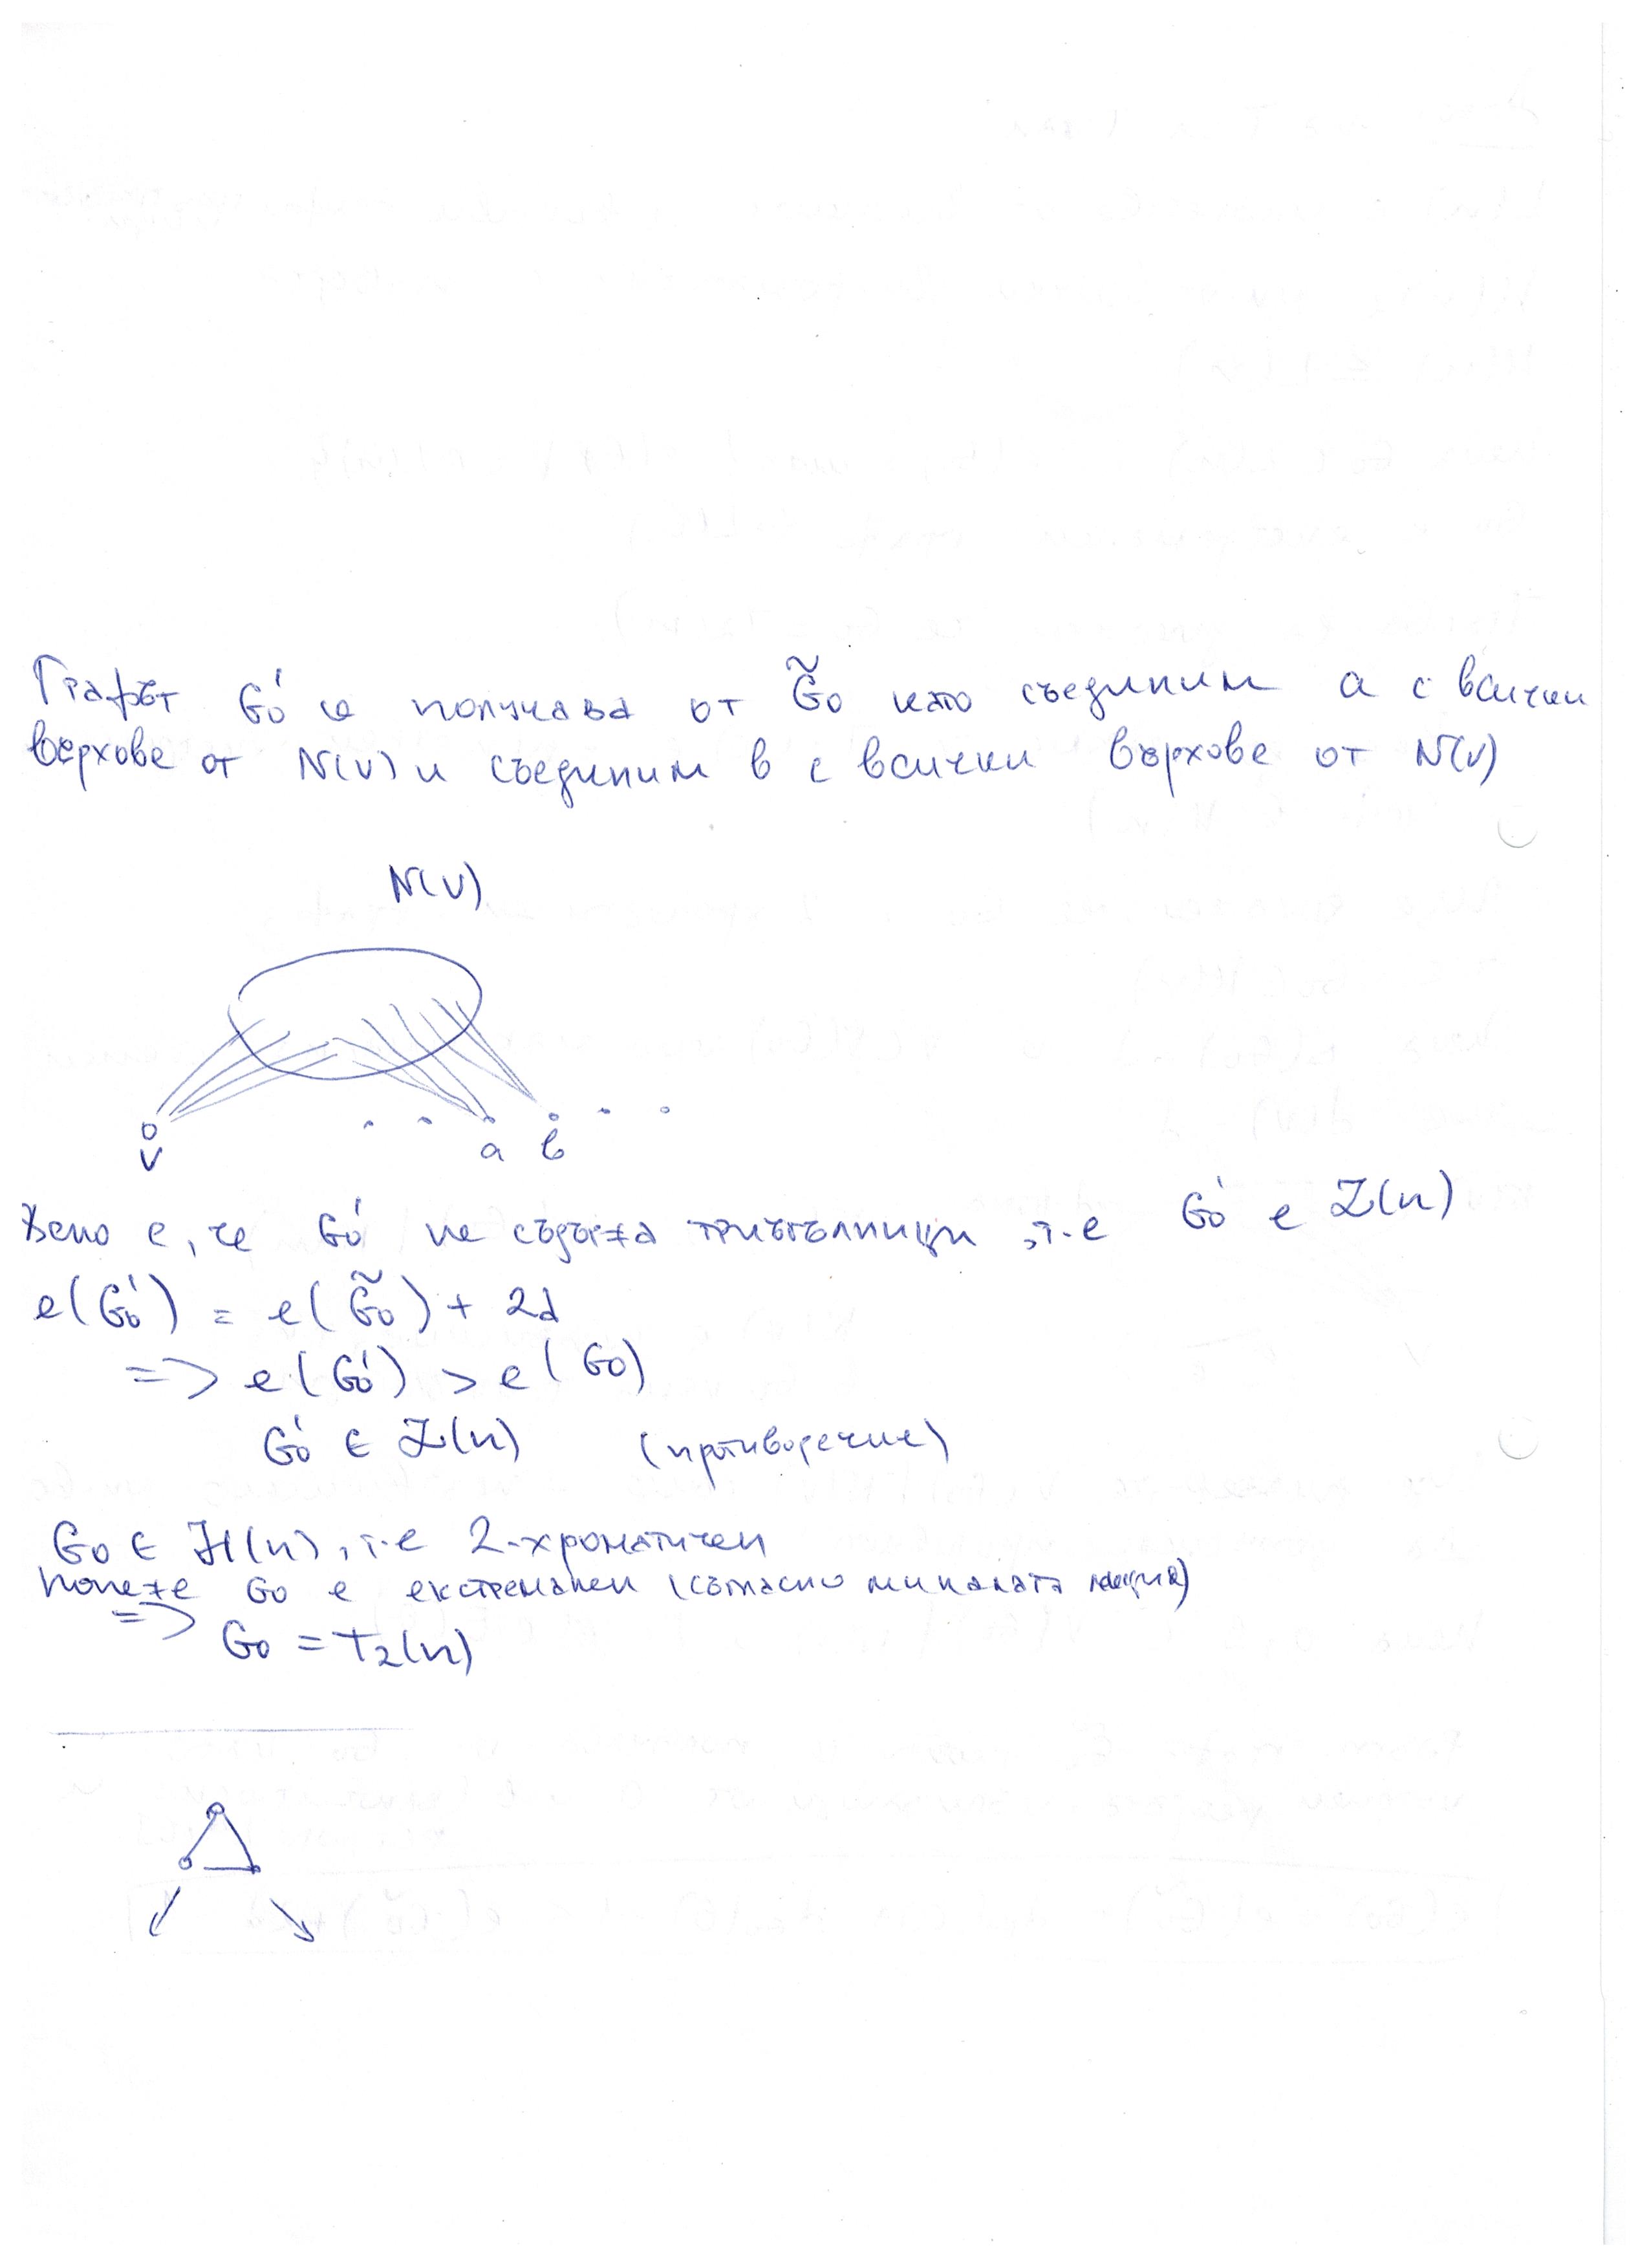 Графът G₀' се получава от G̃₀ като съединим a с всички
върхове от N(v) и съединим b с всички върхове от N(v)
N(v)
v a b
Ясно е, че G₀' не съдържа триъгълници, т.е G₀' ∈ L(n)
e(G₀') = e(G̃₀) + 2d
=> e(G₀') > e(G₀)
G₀' ∈ L(n) (противоречие)
G₀ ∈ H(n), т.е 2-хроматичен
понеже G₀ е екстремален (съгласно миналата лекция)
=> G₀ = T₂(n)